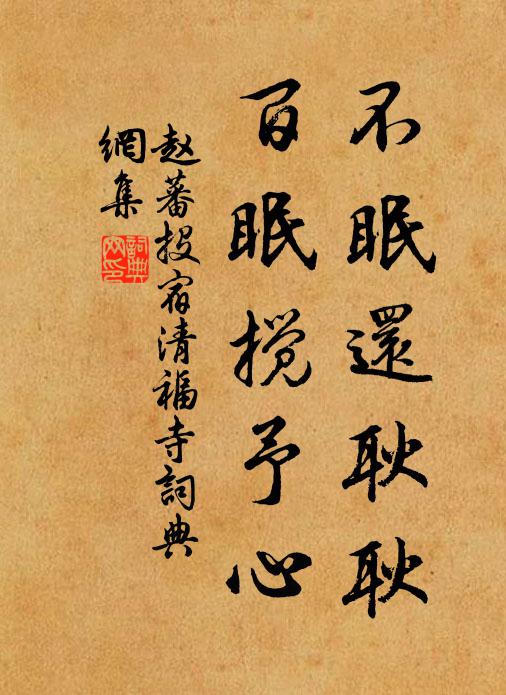 不眠還耿耿
百眠揽予心
赵蕃投宿清福寺詞典
網集
詞典
网印